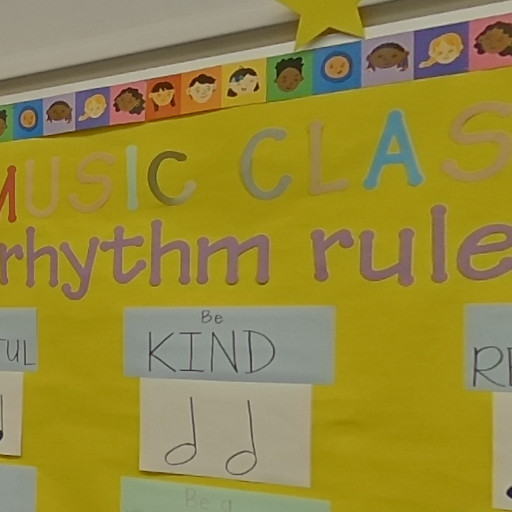 MUSIC CLAS
rhythm rule
TUL
Be
KIND
RE
Be a